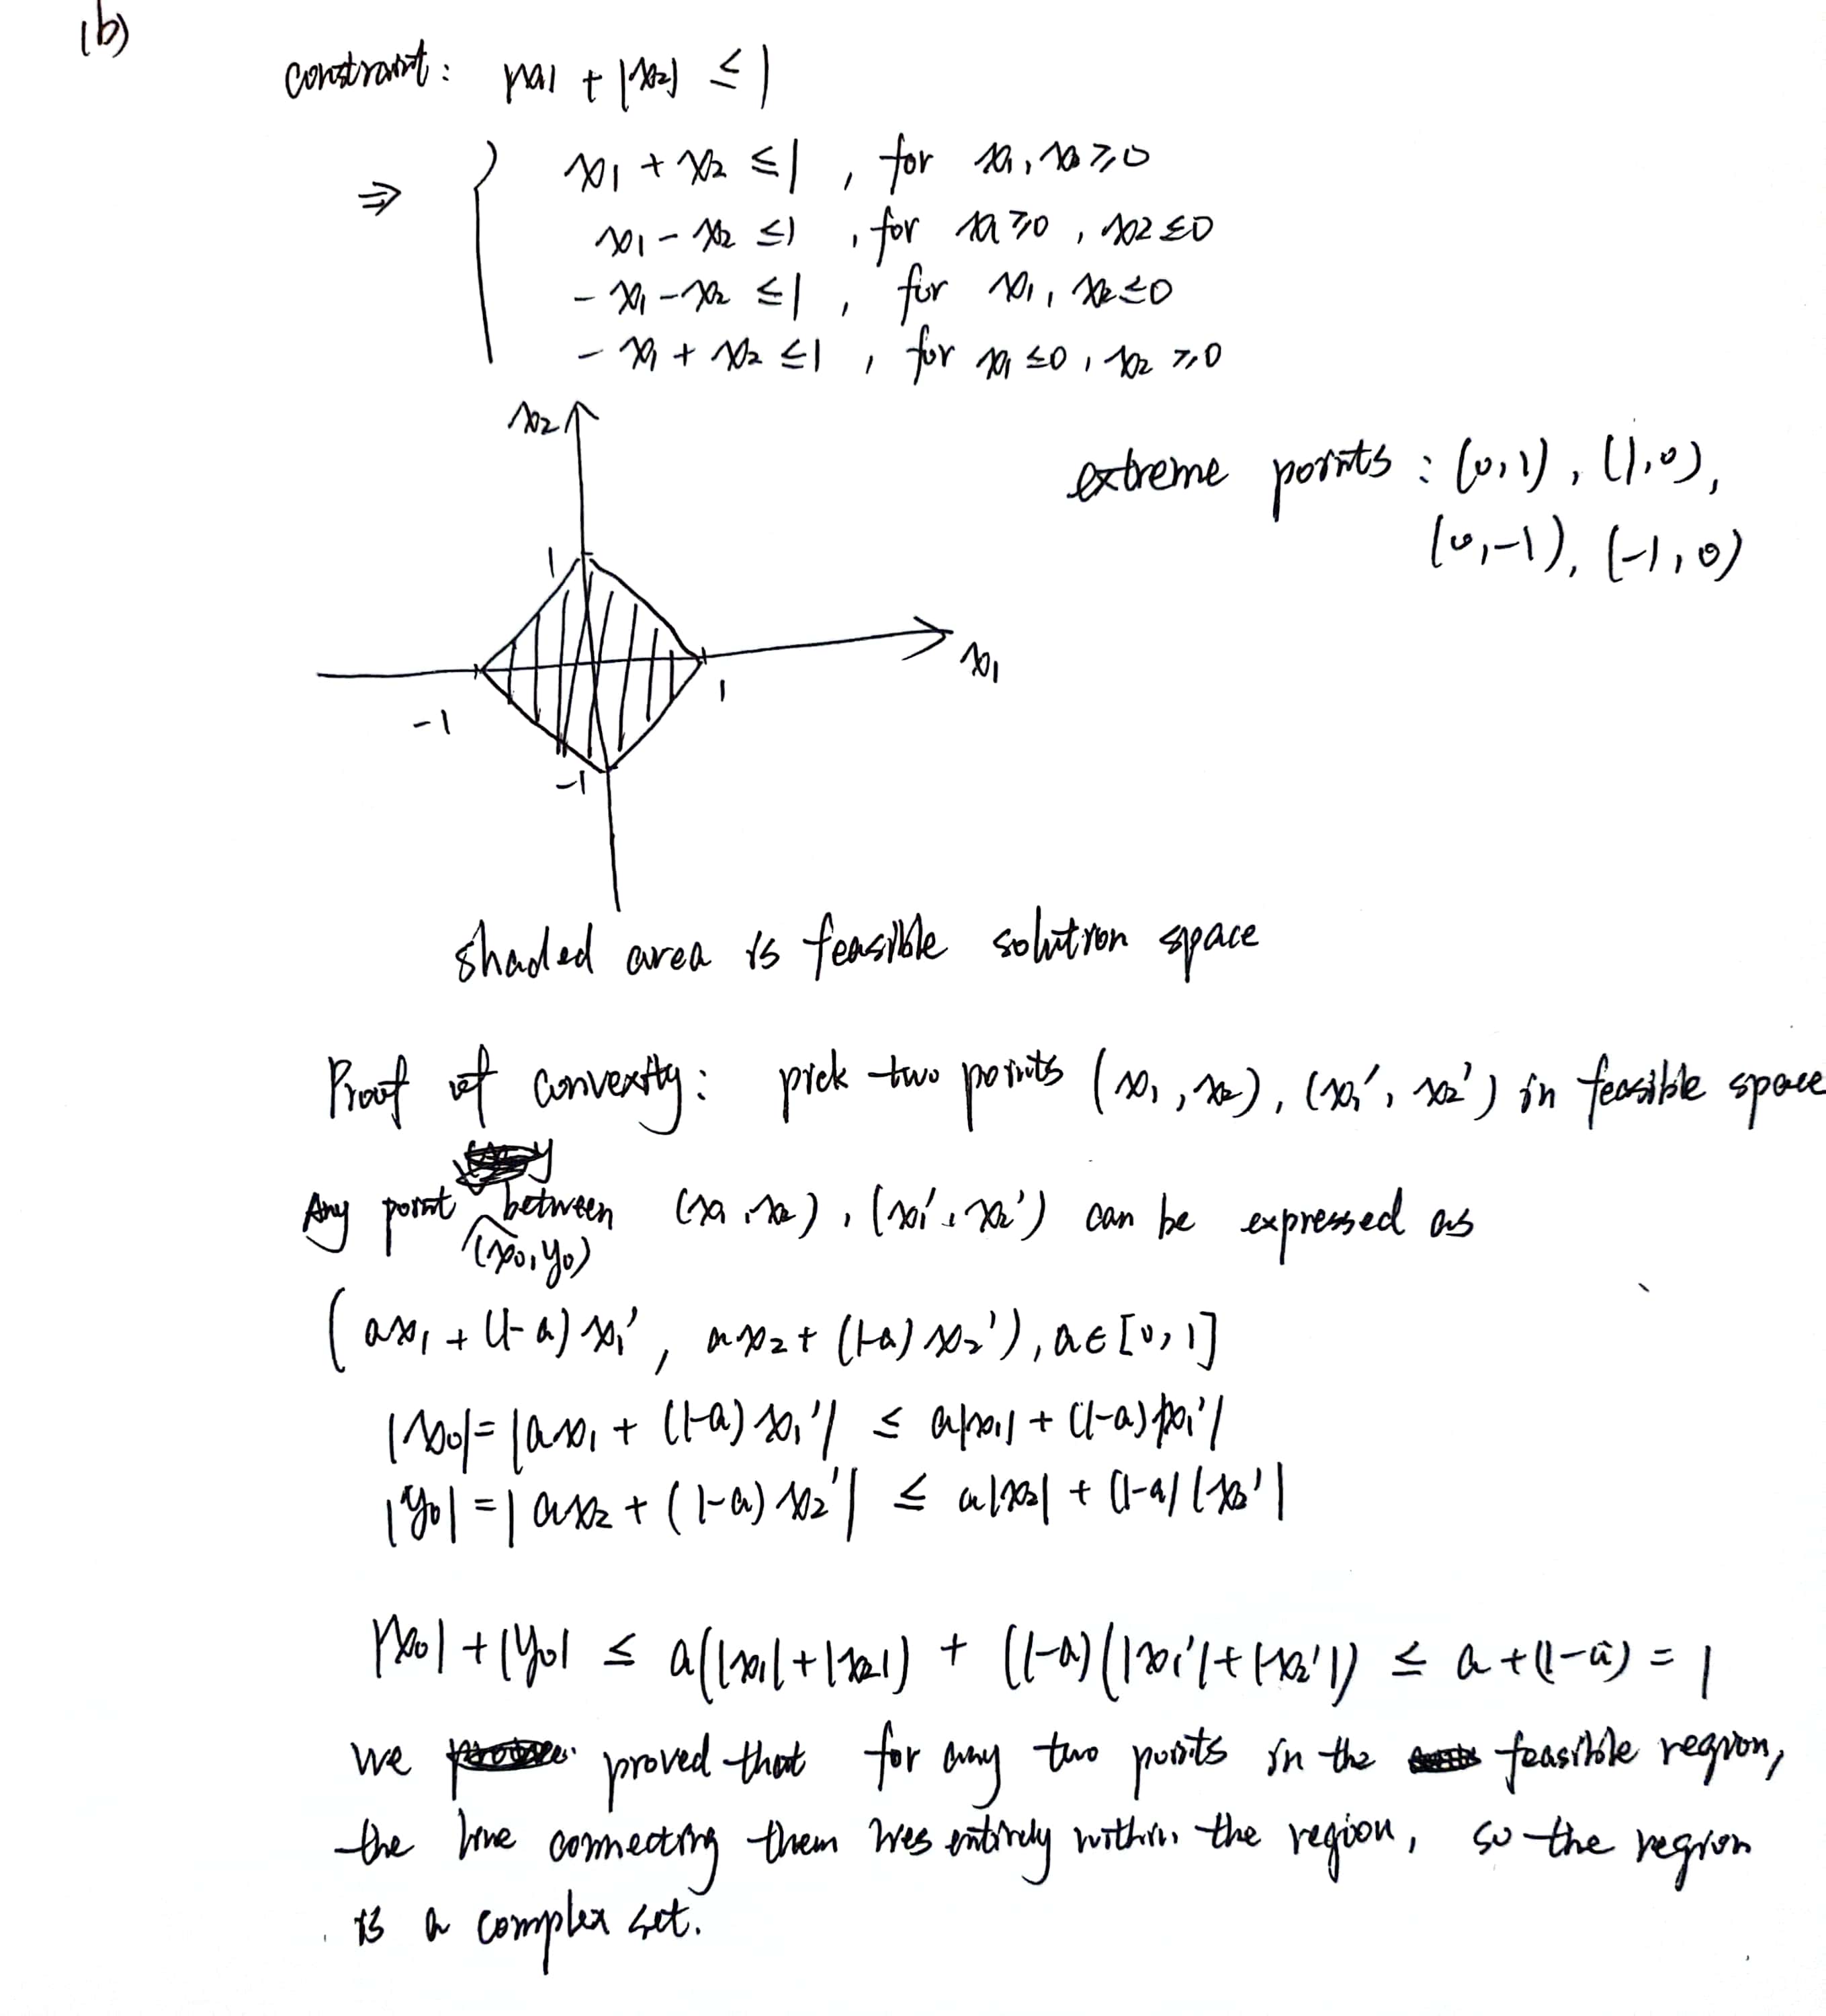 (b)
constraint: |x1| + |x2| ≤ 1
⇒ { x1 + x2 ≤ 1 , for x1, x2 ≥ 0
x1 - x2 ≤ 1 , for x1 ≥ 0 , x2 ≤ 0
- x1 - x2 ≤ 1 , for x1, x2 ≤ 0
- x1 + x2 ≤ 1 , for x1 ≤ 0, x2 ≥ 0
x2
extreme points : (0,1), (1,0),
(0,-1), (-1,0)
1
x1
-1
1
-1
shaded area is feasible solution space
Proof of convexity: pick two points (x1, x2), (x1', x2') in feasible space
Any point (x0, y0) between (x1, x2), (x1', x2') can be expressed as
(ax1 + (1-a)x1', ax2 + (1-a)x2'), a∈[0,1]
|x0| = |ax1 + (1-a)x1'| ≤ a|x1| + (1-a)|x1'|
|y0| = |ax2 + (1-a)x2'| ≤ a|x2| + (1-a)|x2'|
|x0| + |y0| ≤ a(|x1| + |x2|) + (1-a)(|x1'| + |x2'|) ≤ a + (1-a) = 1
We proved that for any two points in the feasible region,
the line connecting them lies entirely within the region, so the region
is a complex set.